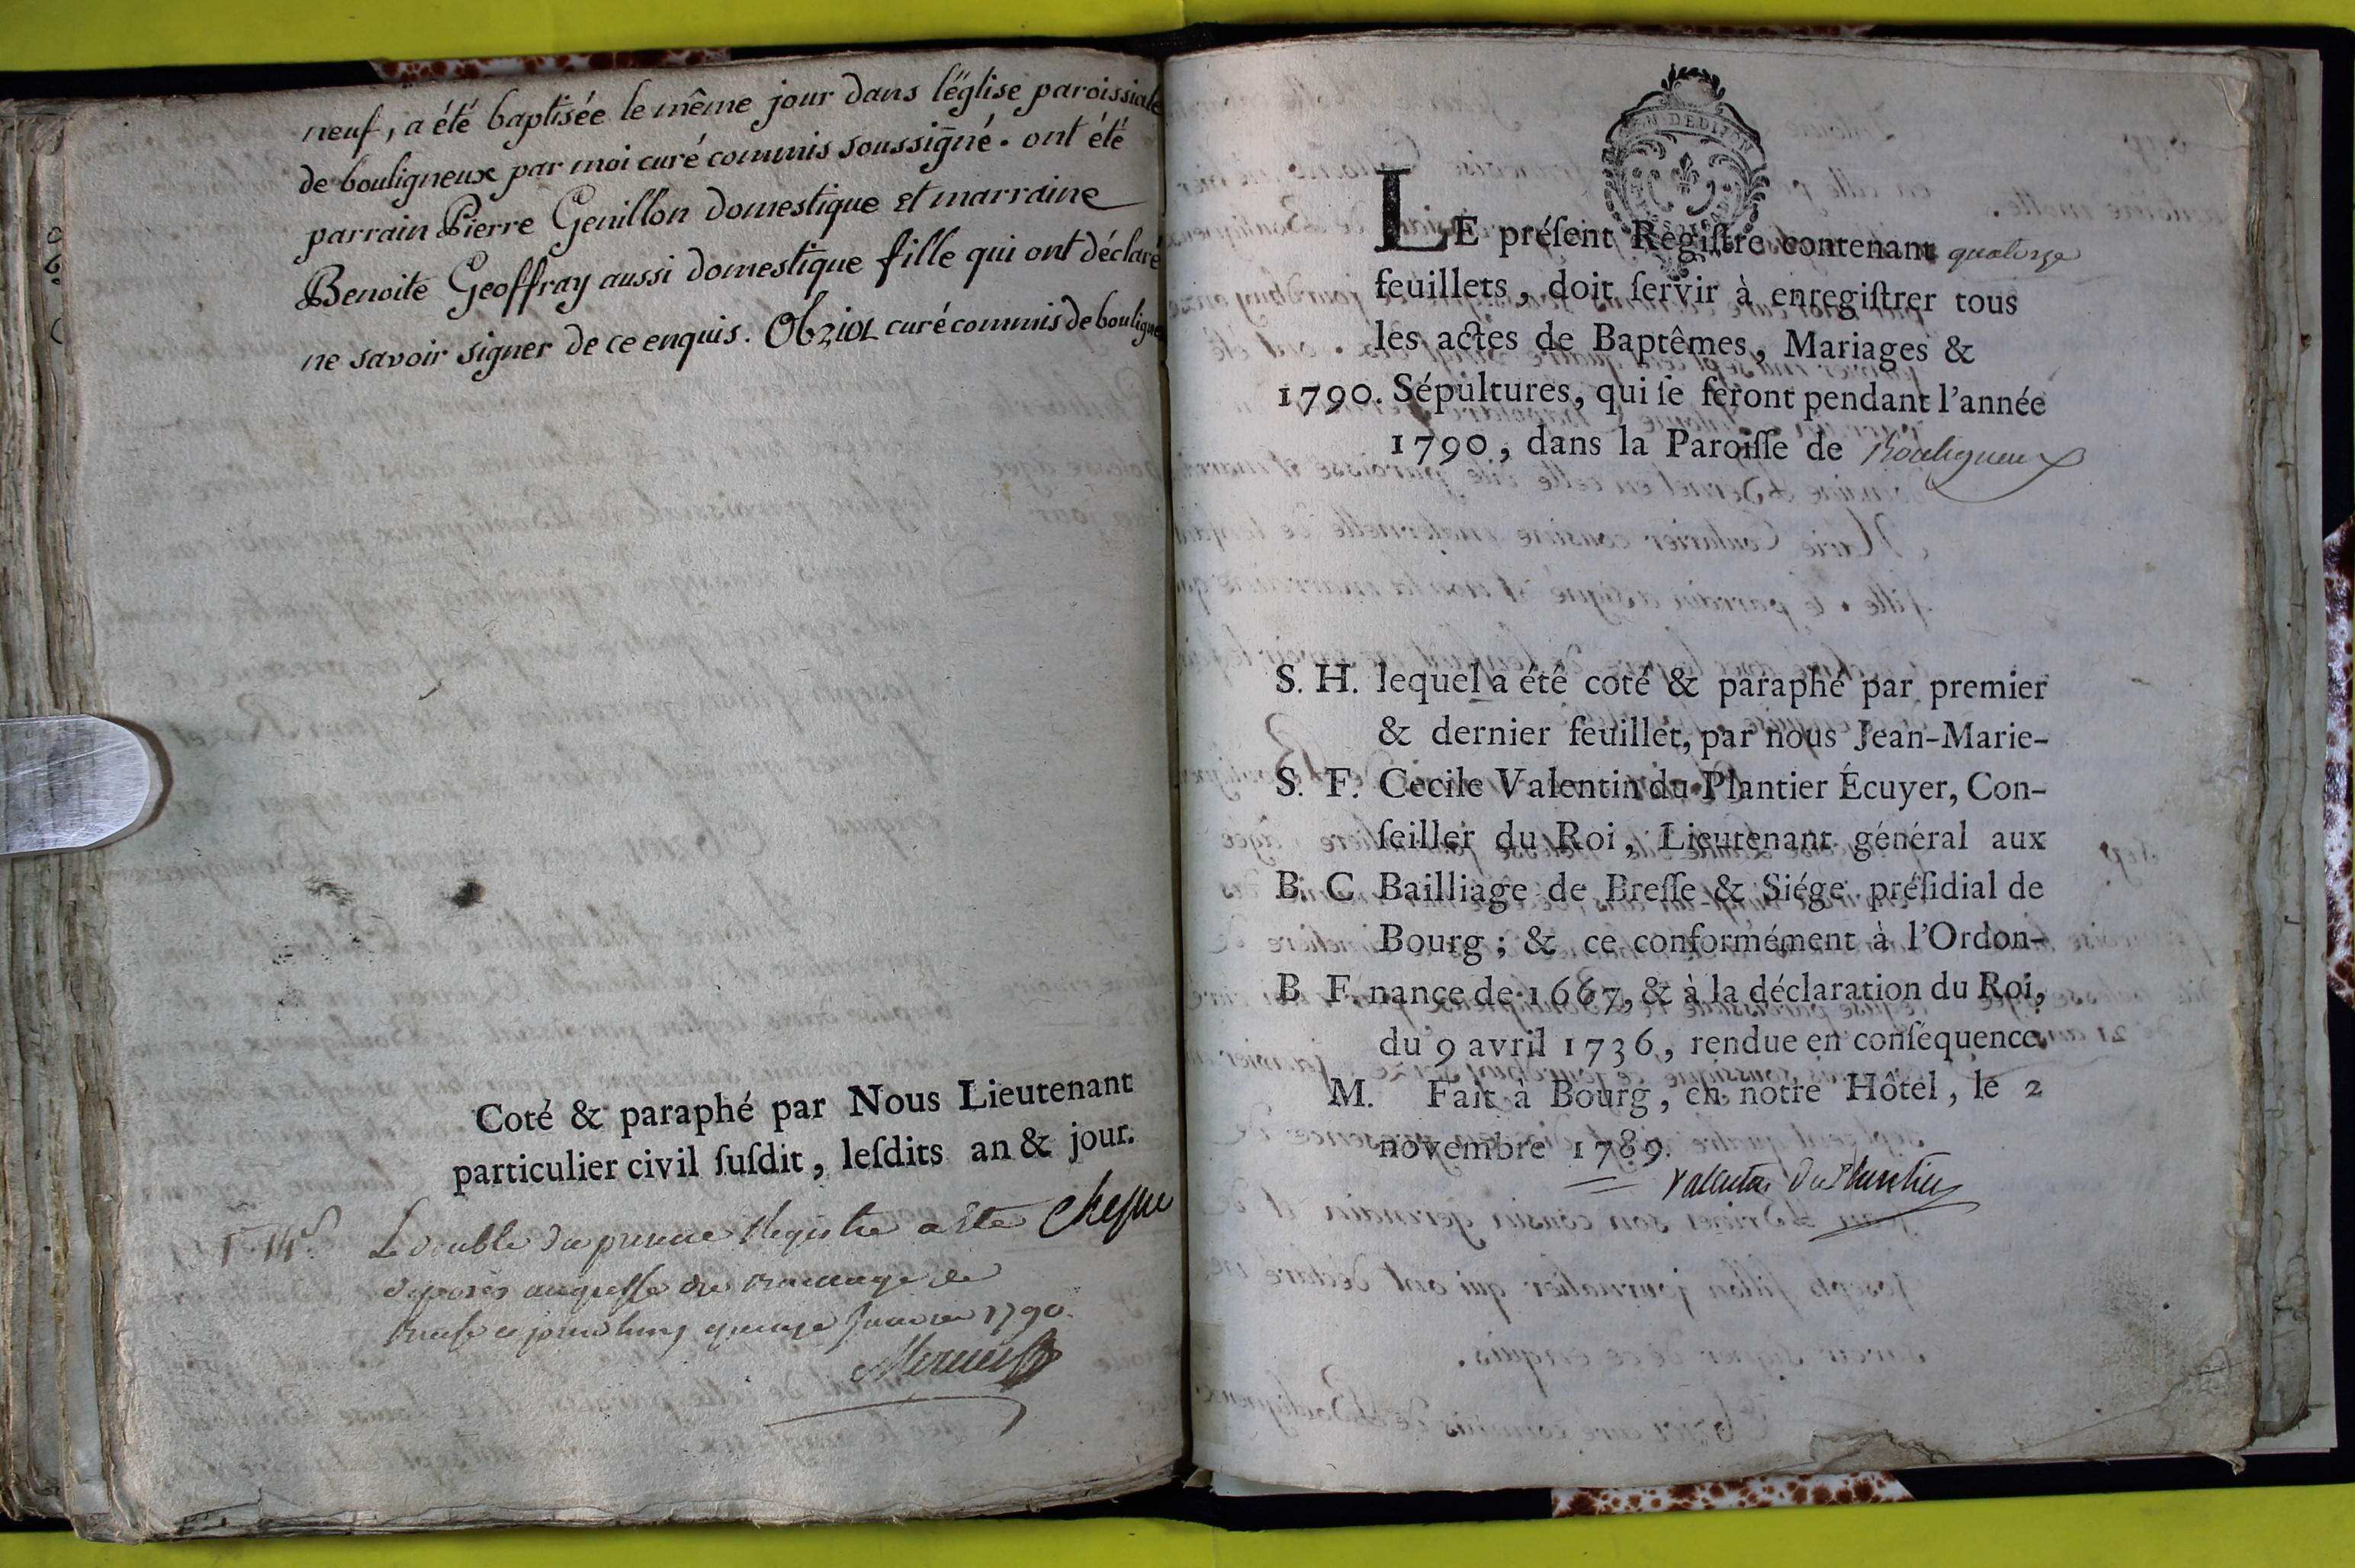 neuf, a été baptisée le même jour dans l'église paroissiale
de bouligneux par moi curé commis soussigné. ont été
parrain Pierre Genillon domestique et marraine
Benoite Geoffray aussi domestique fille qui ont déclaré
ne savoir signer de ce enquis. curé commis de bouligneu
Coté & paraphé par Nous Lieutenant
particulier civil ſuſdit, leſdits an & jour.
Le double du present Registre a été
deposés au greffe du de
ce jourdhuy quinze Janvier 1790.
LE préſent Régiſtre contenant quatorze
feuillets, doit ſervir à enregiſtrer tous
les actes de Baptêmes, Mariages &
1790. Sépultures, qui ſe feront pendant l'année
1790, dans la Paroiſſe de Bouligneux
S. H. lequel a été coté & paraphé par premier
& dernier feuillet, par nous Jean-Marie-
S. F. Cecile Valentin du Plantier Écuyer, Con-
ſeiller du Roi, Lieutenant général aux
B. C Bailliage de Breſſe & Siége préſidial de
Bourg ; & ce conformément à l'Ordon-
B. F. nance de 1667, & à la déclaration du Roi,
du 9 avril 1736, rendue en conſéquence.
M. Fait à Bourg, en notre Hôtel, le 2
novembre 1789.
Valentin Du Plantier